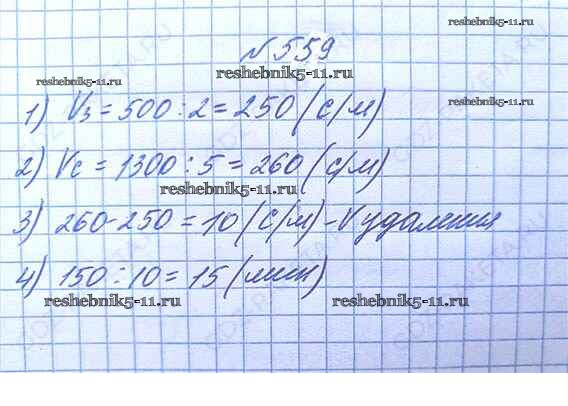 reshebnik5-11.ru
№ 559
reshebnik5-11.ru
reshebnik5-11.ru
1) Vз = 500 : 2 = 250 (с/м)
2) Vс = 1300 : 5 = 260 (с/м)
reshebnik5-11.ru
3) 260 - 250 = 10 (с/м) - V удаления
4) 150 : 10 = 15 (мин)
reshebnik5-11.ru reshebnik5-11.ru